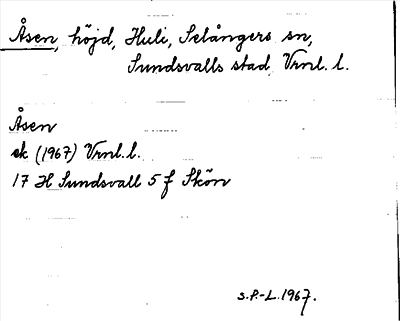 Åsen, höjd, Huli, Selångers sn,
Sundsvalls stad, Vrnl. l.
Åsen
ek (1967) Vrnl. l.
17 H Sundsvall 5 f Skön
s. P.-L. 1967.